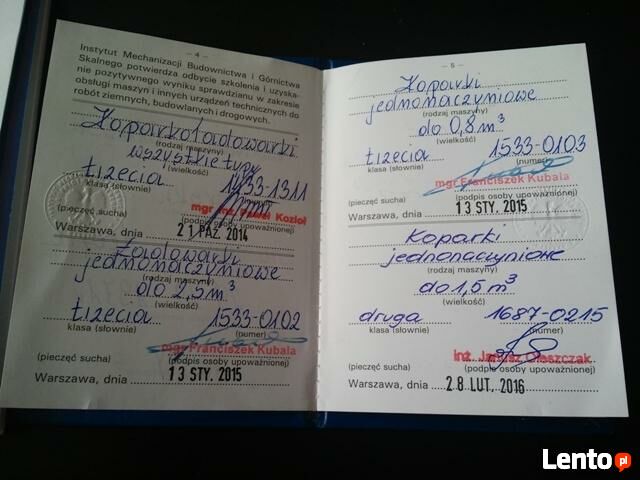 – 4 –
Instytut Mechanizacji Budownictwa i Górnictwa
Skalnego potwierdza odbycie szkolenia i uzyska-
nie pozytywnego wyniku sprawdzianu w zakresie
obsługi maszyn i innych urządzeń technicznych do
robót ziemnych, budowlanych i drogowych.
Koparkoładowarki
(rodzaj maszyny)
wszystkie typy
(wielkość)
trzecia 1433-1311
klasa (słownie) (numer)
mgr inż. Paweł Kozioł
(pieczęć sucha) (podpis osoby upoważnionej)
Warszawa, dnia 21 PAŹ. 2014
Ładowarki
jednonaczyniowe
(rodzaj maszyny)
do 2,5m³
(wielkość)
trzecia 1533-0102
klasa (słownie) (numer)
mgr Franciszek Kubala
(pieczęć sucha) (podpis osoby upoważnionej)
Warszawa, dnia 13 STY. 2015
– 5 –
Koparki
jednonaczyniowe
(rodzaj maszyny)
do 0,8m³
(wielkość)
trzecia 1533-0103
klasa (słownie) (numer)
mgr Franciszek Kubala
(pieczęć sucha) (podpis osoby upoważnionej)
Warszawa, dnia 13 STY. 2015
Koparki
jednonaczyniowe
(rodzaj maszyny)
do 1,5m³
(wielkość)
druga 1687-0215
klasa (słownie) (numer)
inż. Janusz
(pieczęć sucha) (podpis osoby upoważnionej)
Warszawa, dnia 28 LUT. 2016
Lento.pl